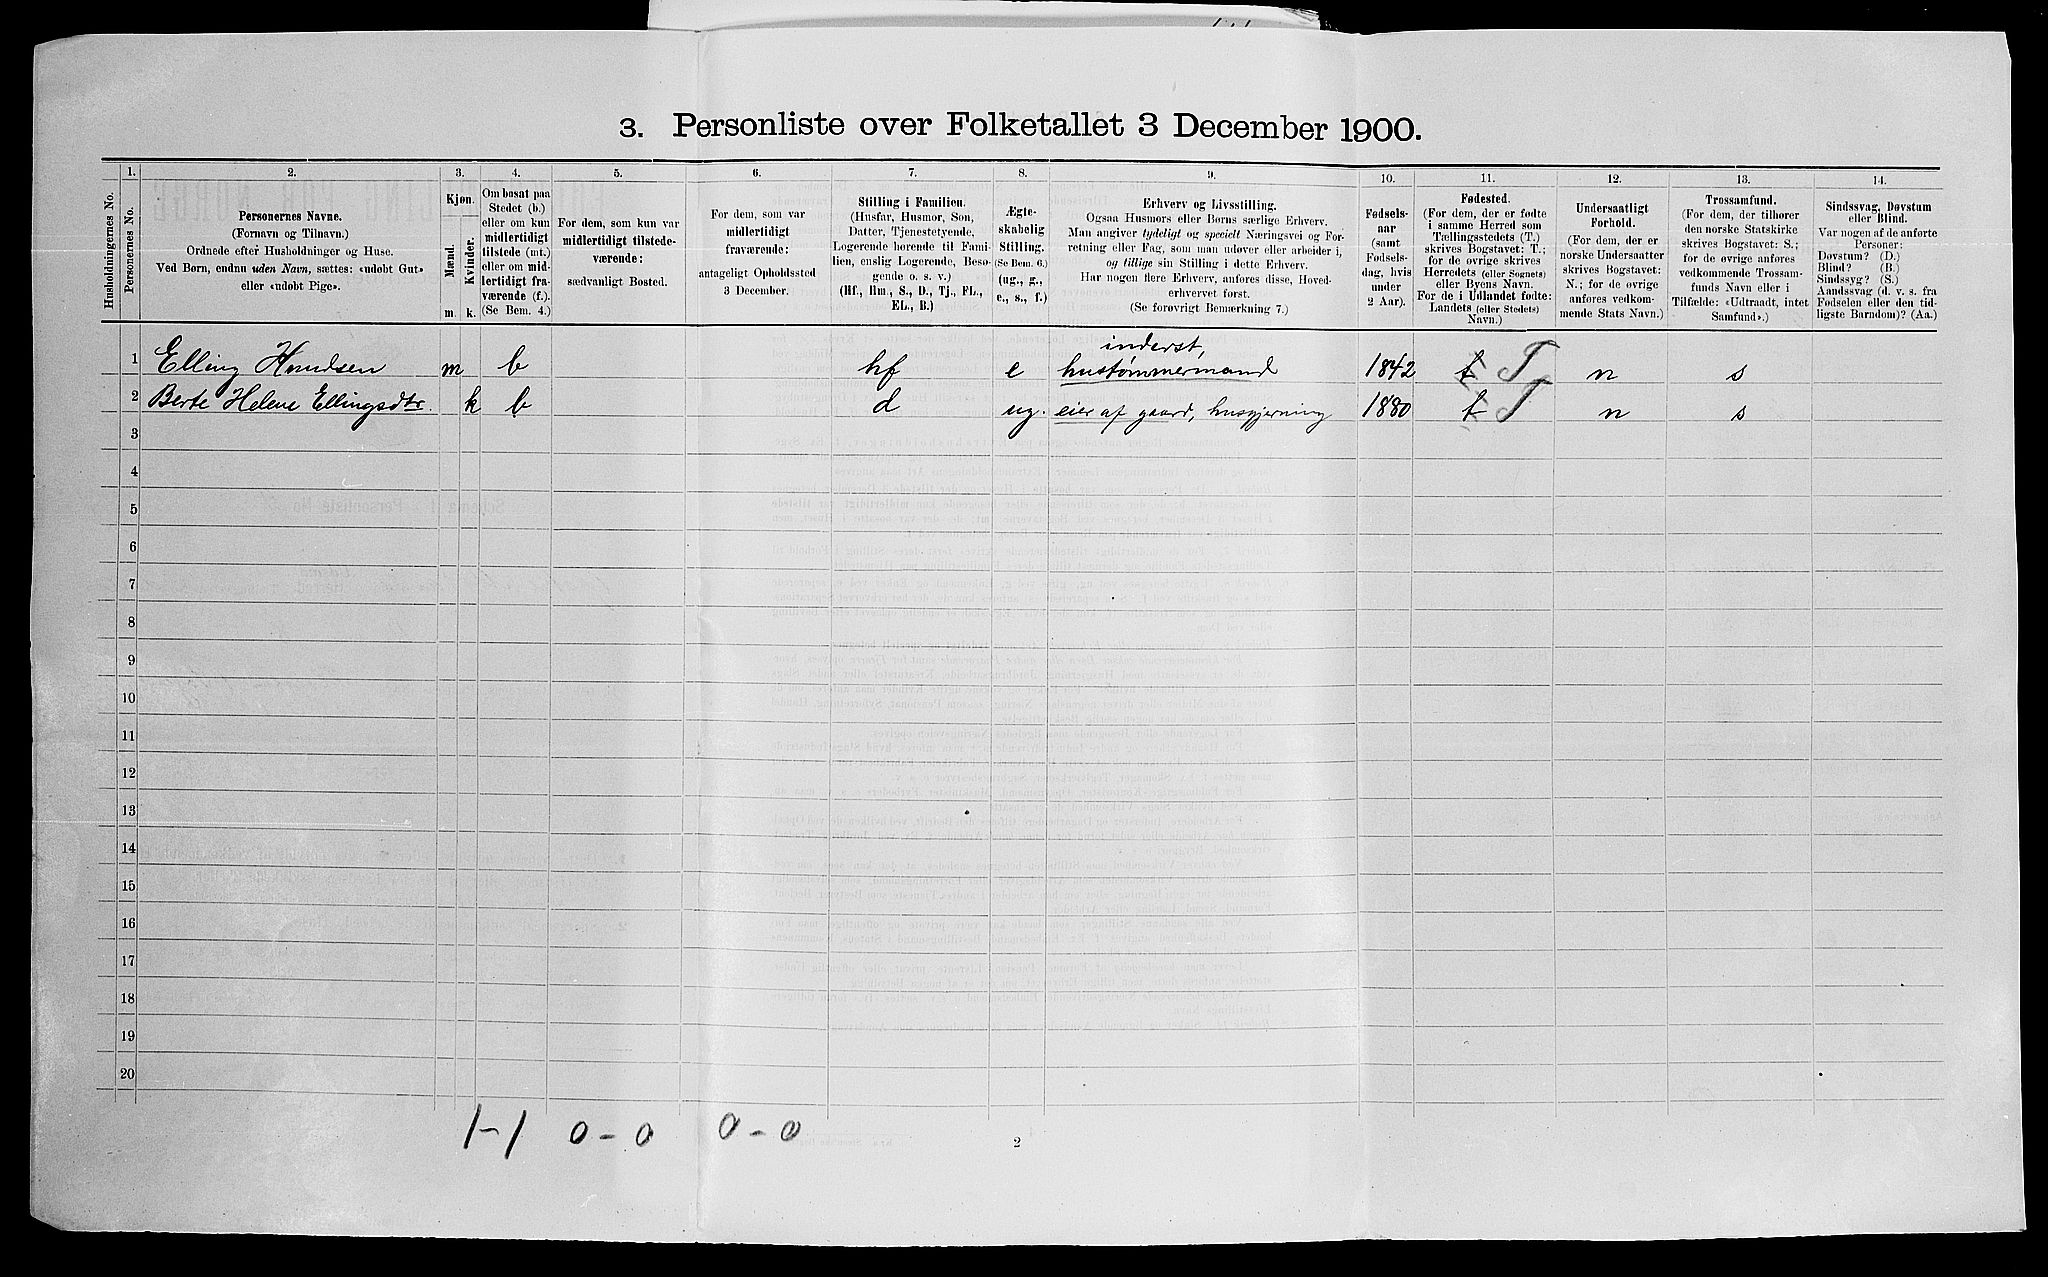 3. Personliste over Folketallet 3 December 1900.
Husholdningernes No.
1.
Personernes No.
2.
Personernes Navne.
(Fornavn og Tilnavn.)
Ordnede efter Husholdninger og Huse.
Ved Børn, endnu uden Navn, sættes: «udøbt Gut»
eller «udøbt Pige».
3.
Kjøn.
Mænd.
Kvinder.
m. k.
4.
Om bosat paa
Stedet (b.)
eller om kun
midlertidigt
tilstede (mt.)
eller om mid-
lertidigt fra-
værende (f.).
(Se Bem. 4.)
5.
For dem, som kun var
midlertidigt tilstede-
værende:
sædvanligt Bosted.
6.
For dem, som var
midlertidigt
fraværende:
antageligt Opholdssted
3 December.
7.
Stilling i Familien.
(Husfar, Husmor, Søn,
Datter, Tjenestetyende,
Logerende hørende til Fami-
lien, enslig Logerende, Besø-
gende o. s. v.)
(Hf., Hm., S., D., Tj., FL.,
EL., B.)
8.
Ægte-
skabelig
Stilling.
(Se Bem. 6.)
(ug., g.,
e., s., f.)
9.
Erhverv og Livsstilling.
Ogsaa Husmors eller Børns særlige Erhverv.
Man angiver tydeligt og specielt Næringsvei og For-
retning eller Fag, som man udøver eller arbeider i,
og tillige sin Stilling i dette Erhverv.
Har nogen flere Erhverv, anføres disse, Hoved-
erhvervet først.
(Se forøvrigt Bemærkning 7.)
10.
Fødsels-
aar
(samt
Fødsels-
dag, hvis
under
2 Aar).
11.
Fødested.
(For dem, der er fødte
i samme Herred som
Tællingsstedets (T.)
skrives Bogstavet: T.;
for de øvrige skrives
Herredets (eller Sognets)
eller Byens Navn.
For de i Udlandet fødte:
Landets (eller Stedets)
Navn.)
12.
Undersaatligt
Forhold.
(For dem, der er
norske Undersaatter
skrives Bogstavet:
N.; for de øvrige
anføres vedkom-
mende Stats Navn.)
13.
Trossamfund.
(For dem, der tilhører
den norske Statskirke
skrives Bogstavet: S.;
for de øvrige anføres
vedkommende Trossam-
funds Navn eller i
Tilfælde: «Udtraadt, intet
Samfund».)
14.
Sindssvag, Døvstum
eller Blind.
Var nogen af de anførte
Personer:
Døvstum? (D.)
Blind? (B.)
Sindssyg? (S.)
Aandssvag (d. v. s. fra
Fødselen eller den tid-
ligste Barndom)? (Aa.)
inderst,
1 Elling Knudsen m b hf e hustømmermand 1842 t T n s
2 Berte Helene Ellingsdtr. k b d ug. eier af gaard, husgjerning 1880 t T n s
3
4
5
6
7
8
9
10
11
12
13
14
15
16
17
18
19
20
1-1 0-0 0-0
2